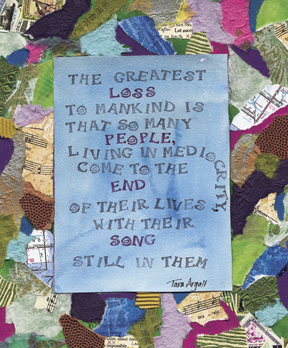 THE GREATEST
LOSS
TO MANKIND IS
THAT SO MANY
PEOPLE,
LIVING IN MEDIOCRITY,
COME TO THE
END
OF THEIR LIVES
WITH THEIR
SONG
STILL IN THEM
Tara Argall